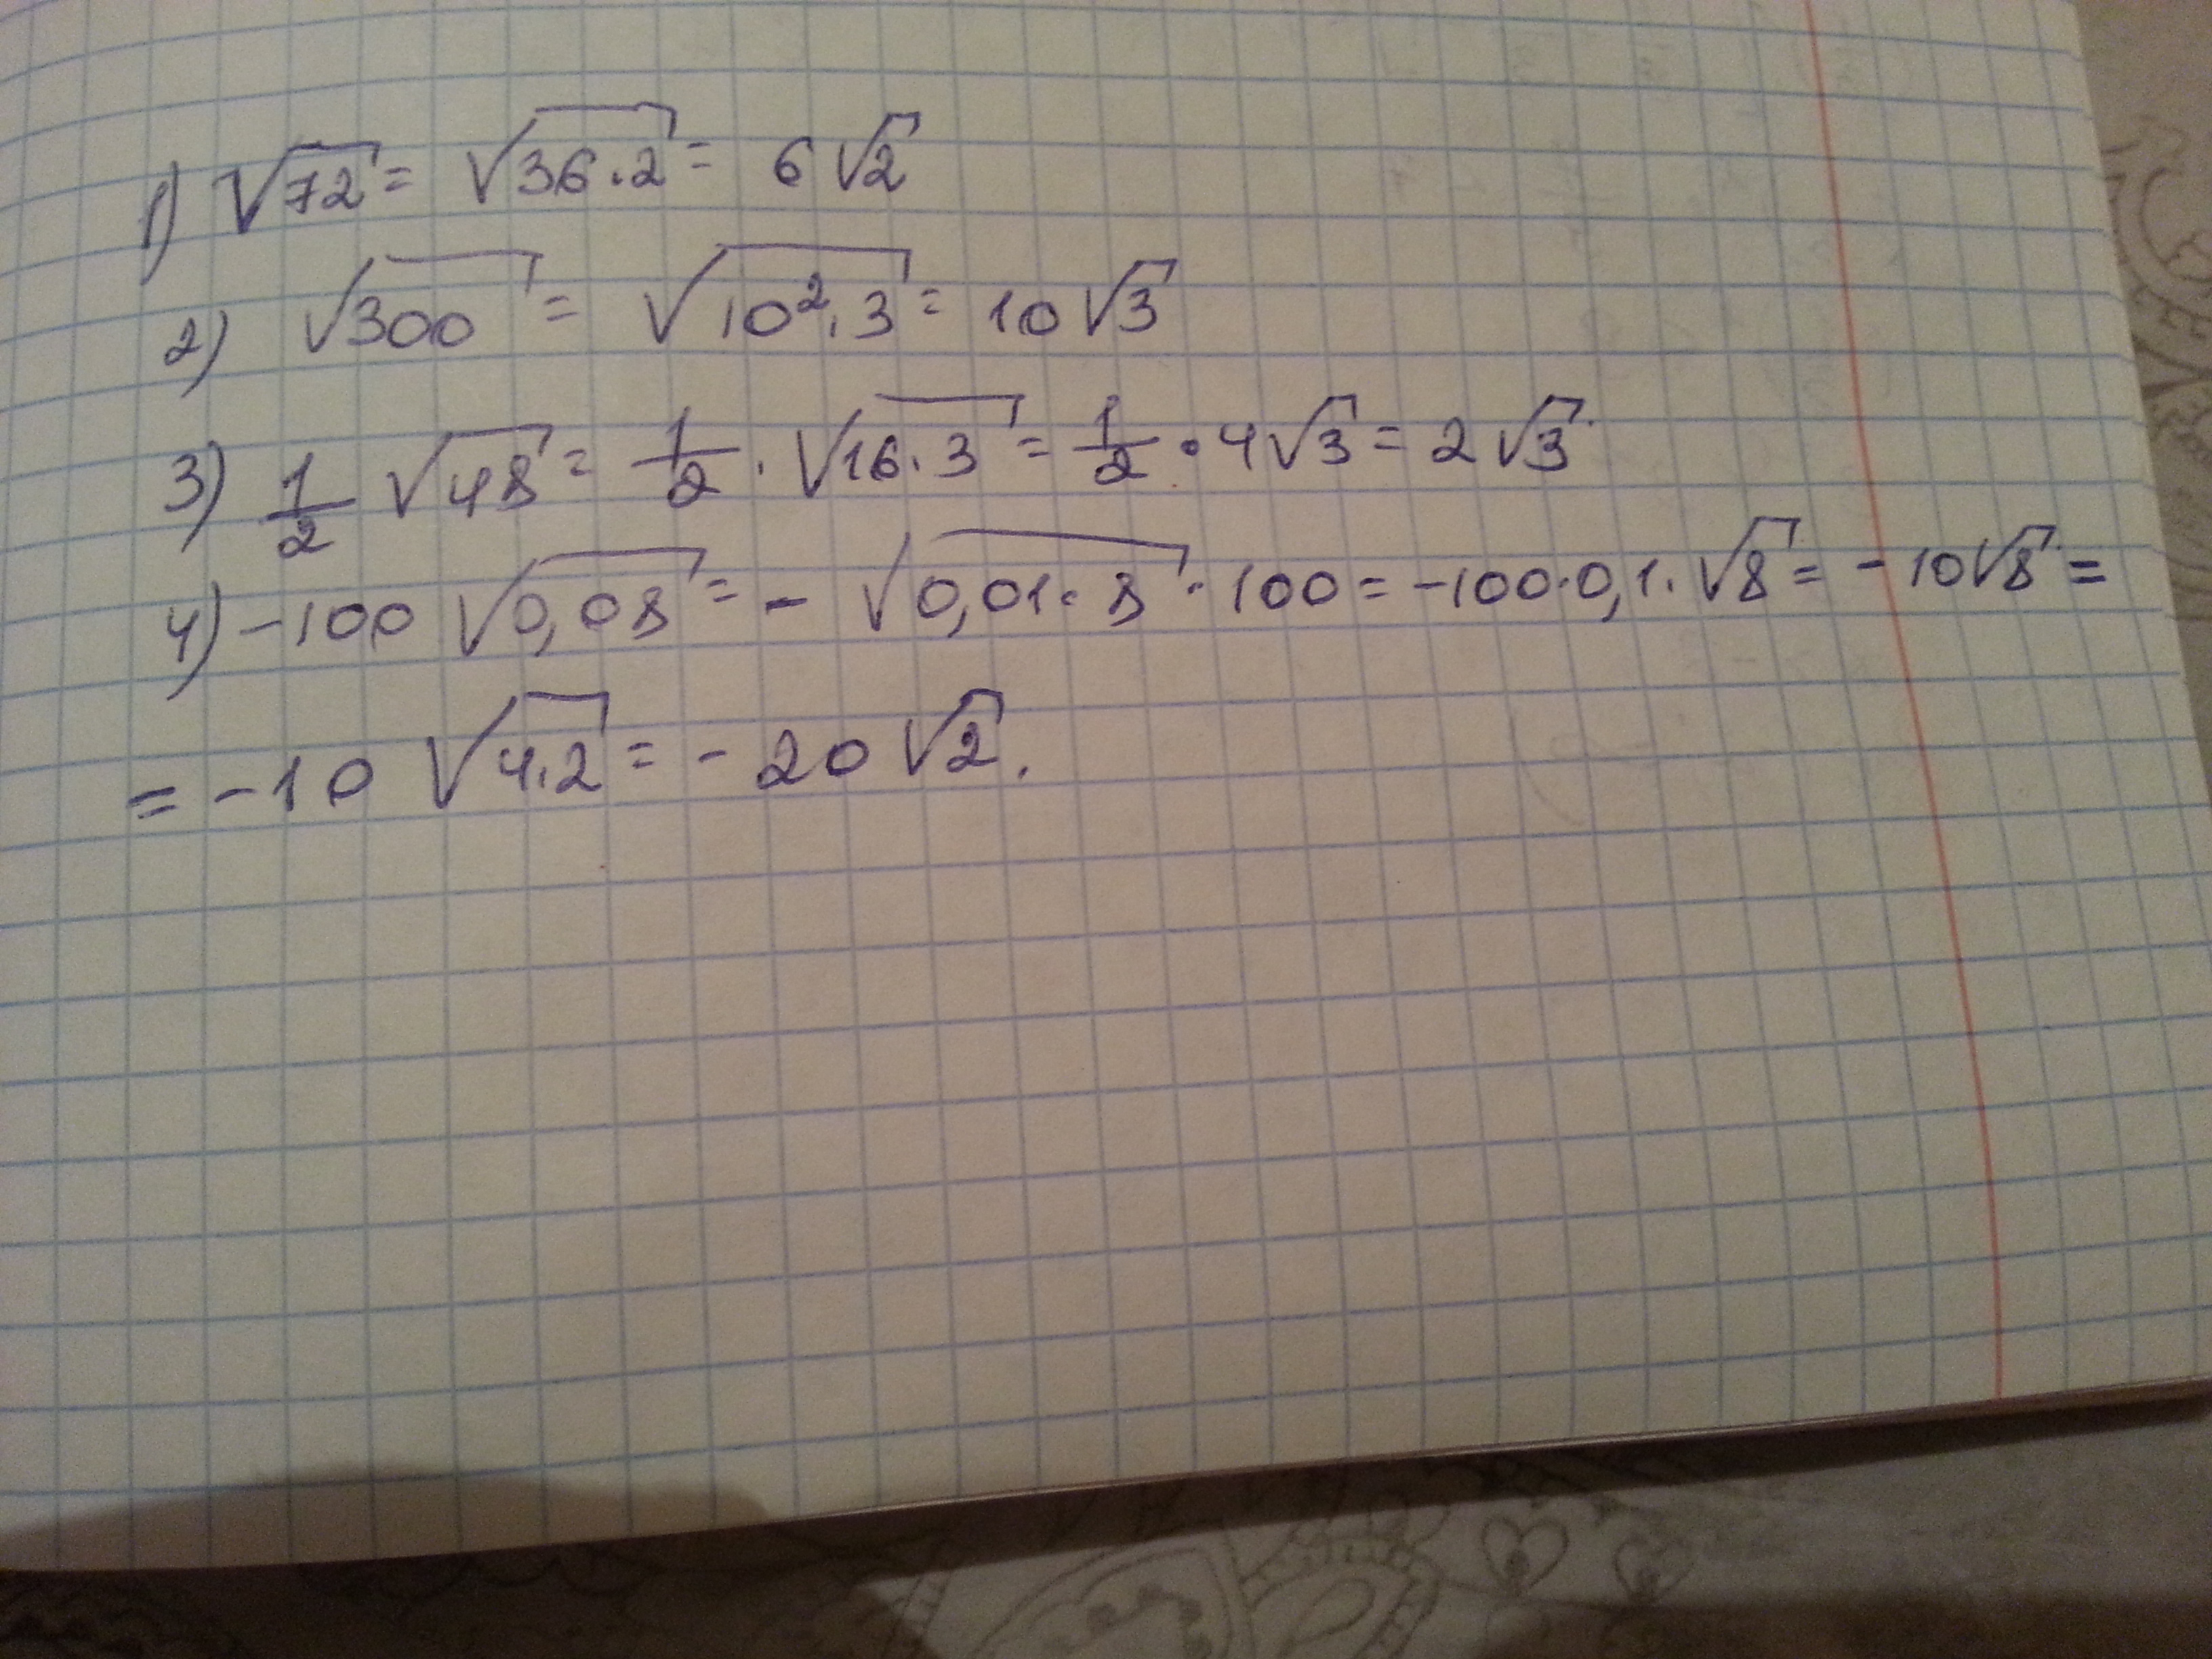 1) √72 = √36·2 = 6√2
2) √300 = √10²·3 = 10√3
3) 1/2 √48 = 1/2 · √16·3 = 1/2 · 4√3 = 2√3
4) -100 √0,08 = - √0,01·8 · 100 = -100·0,1·√8 = -10√8 =
= -10 √4·2 = -20 √2.